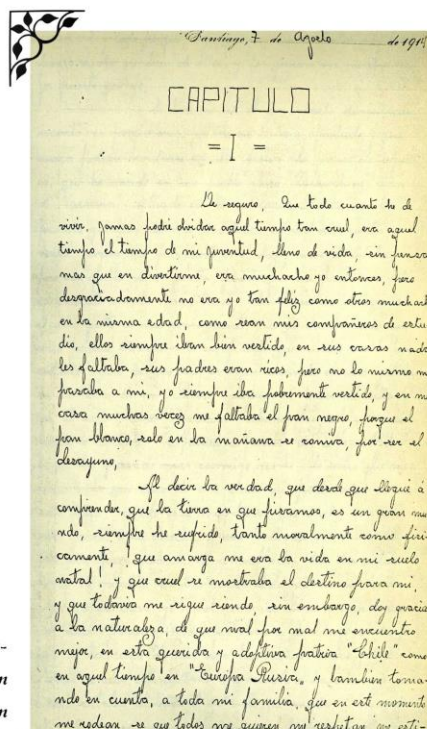 Santiago, 7 de Agosto de 191
CAPITULO
= I =
De seguro, Que todo cuanto he de
vivir, jamas podré olvidar aquel tiempo tan cruel, era aquel
tiempo el tiempo de mi juventud, lleno de vida, sin pensa
mas que en divertirme, era muchacho yo entonces, pero
desgraciadamente no era yo tan feliz como otros muchach
en la misma edad, como sean mis compañeros de estu
dio, ellos siempre iban bien vestido, en sus casas nada
les faltaba, sus padres eran ricos, pero no lo mismo m
pasaba a mi, yo siempre iba pobremente vestido, y en m
casa muchas veces me faltaba el pan negro, porque el
pan blanco, solo en la mañana se comiva, por ser el
desayuno,
Al decir la verdad, que desde que llegué á
comprender, que la tierra en que pisamos, es un gran mu
ndo, siempre he sufrido, tanto moralmente como fisi
camente, ¡que amarga me era la vida en mi suelo
natal! y que cruel se mostraba el destino para mi,
y que todavia me sigue siendo, sin embargo, doy gracia
a la naturaleza, de que mal por mal me encuentro
mejor, en esta querida y adoptiva patria "Chile" como
en aquel tiempo en "Europa Rusia", y tambien toma-
ndo en cuenta, a toda mi familia, que en este momento
me rodean se que todos me quieren me respetan
-
n
n